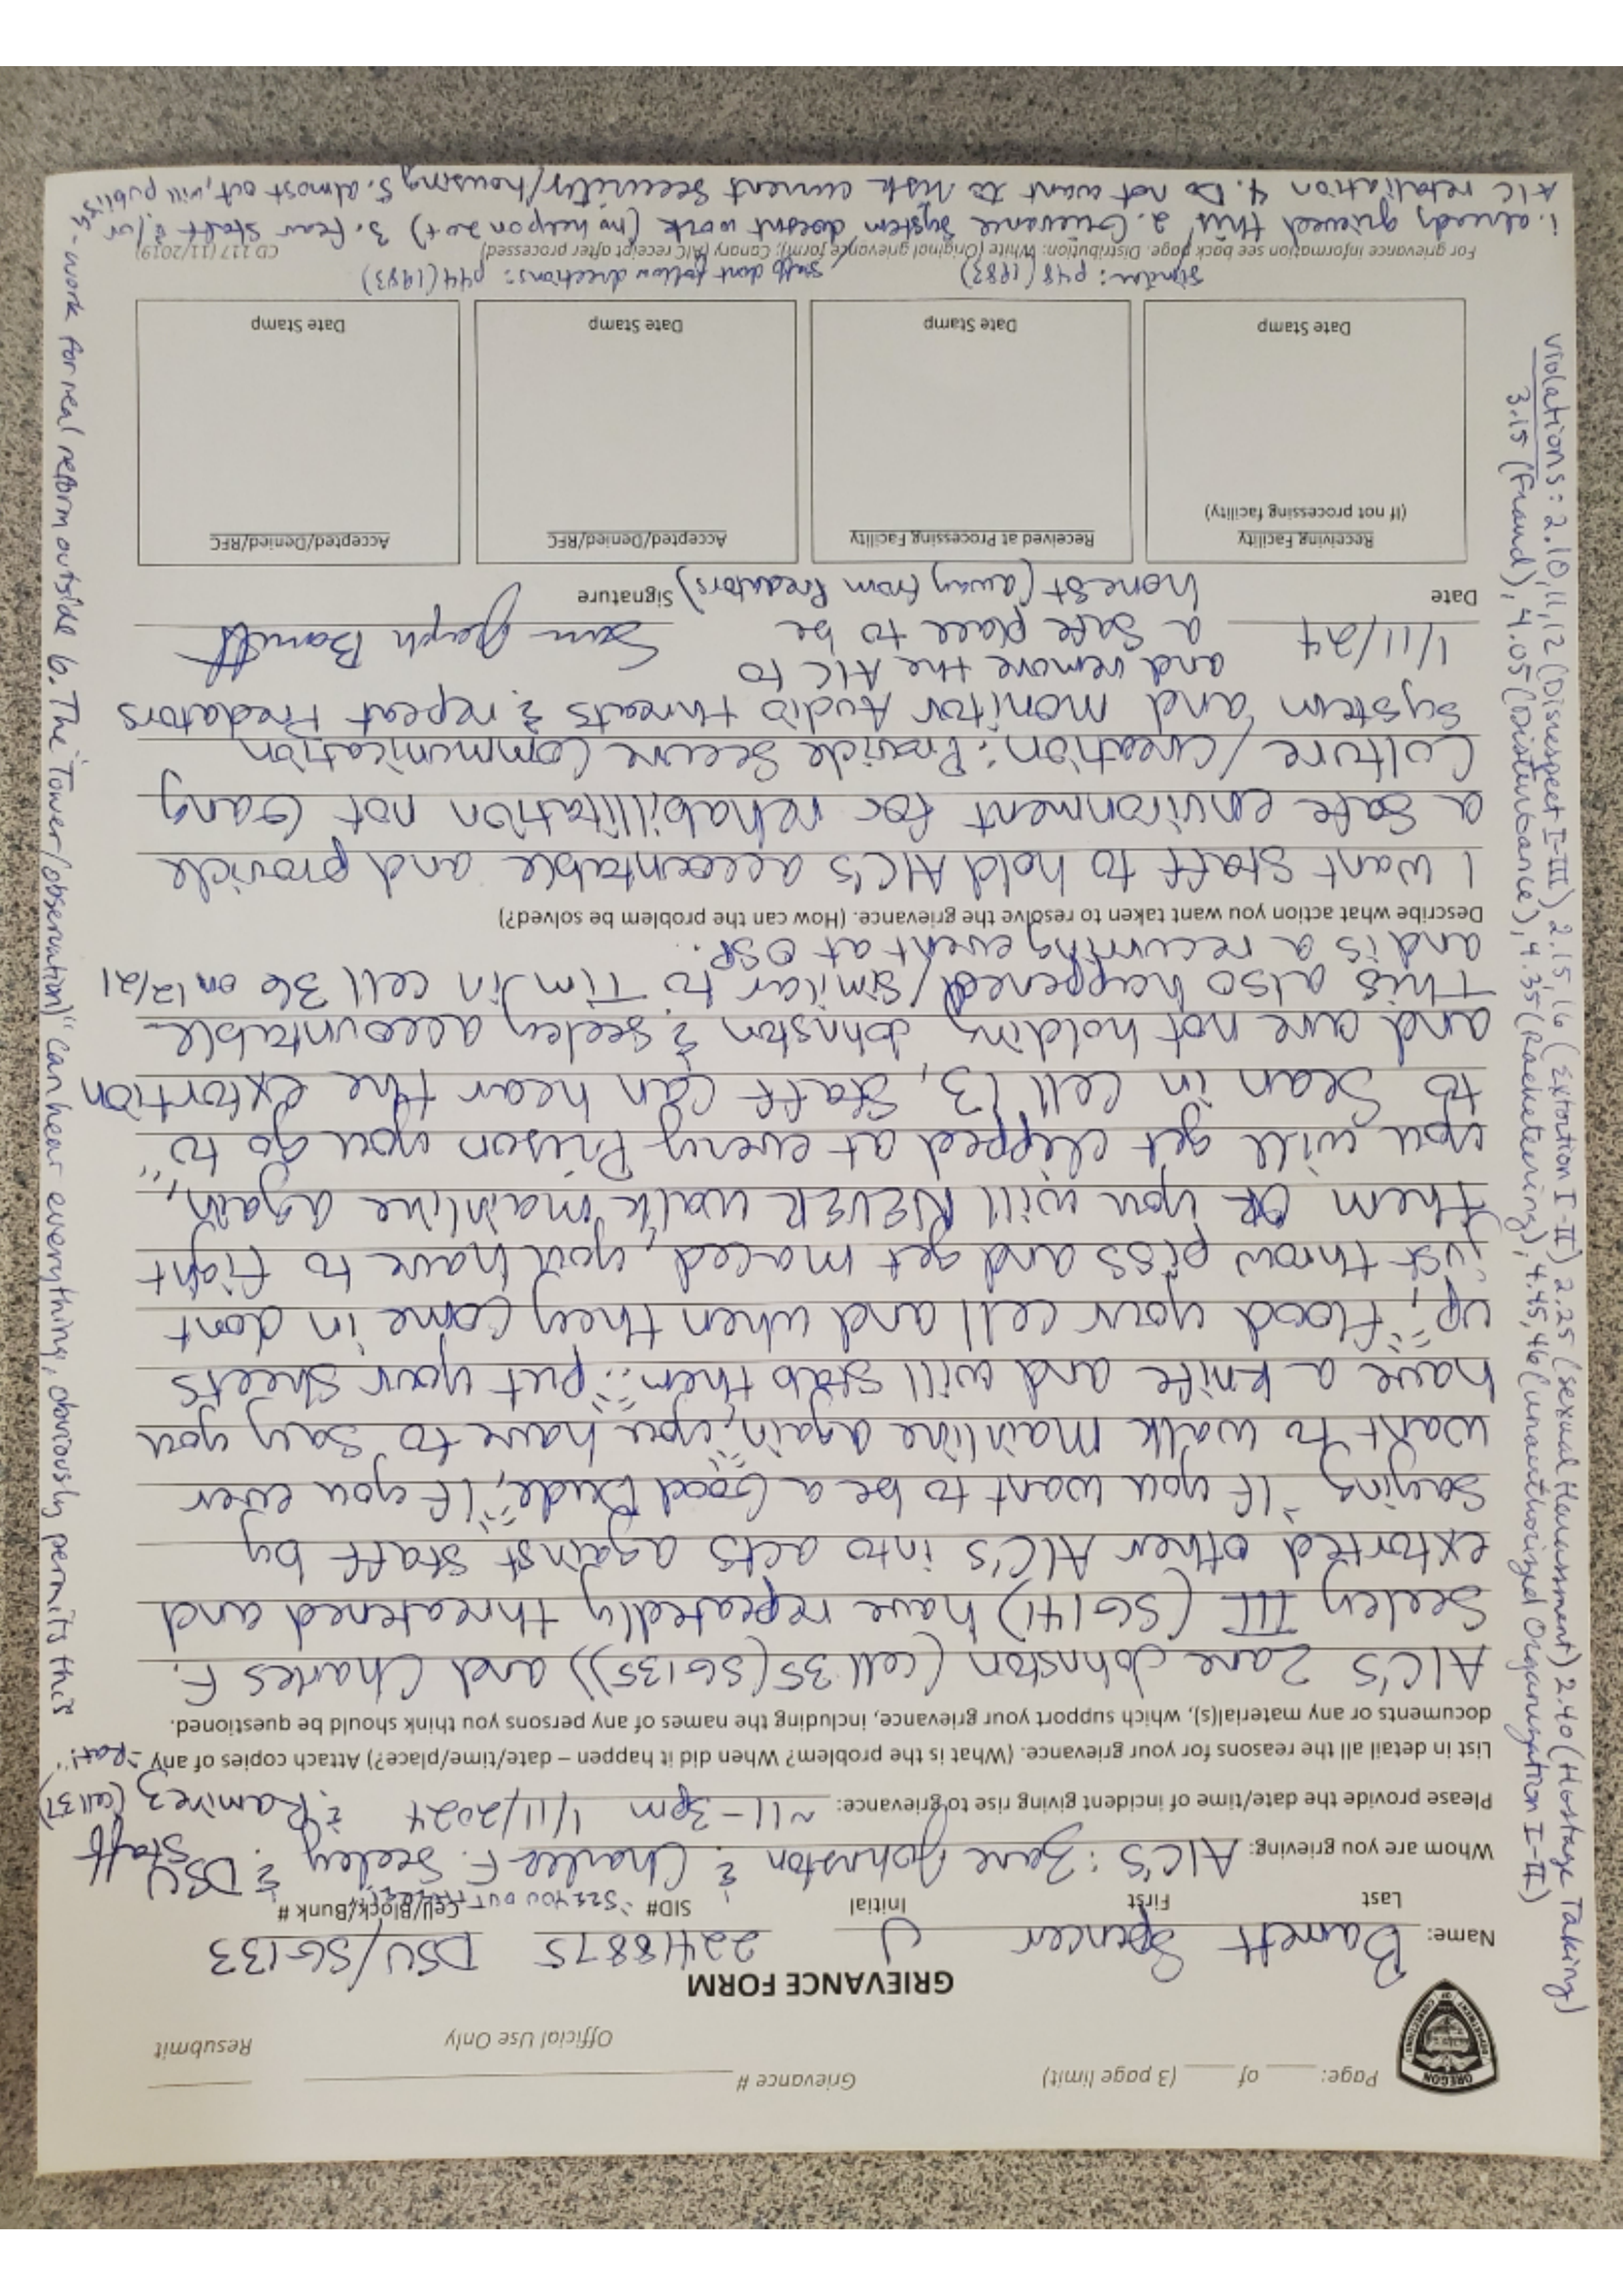 Page: ___ of ___ (3 page limit)
Grievance # ___
Official Use Only
Resubmit
OREGON
DEPARTMENT OF CORRECTIONS
GRIEVANCE FORM
Name: Barnett Spencer J 22418875 DSU/SG133
Last First Initial SID# Cell/Block/Bunk #
"SEE YOU OUT
Whom are you grieving: AIC'S: Zane Johnston & Charles F. Seeley & DSU Staff
Please provide the date/time of incident giving rise to grievance: ~11-3pm 1/11/2024 & Ramirez (cell 37)
List in detail all the reasons for your grievance. (What is the problem? When did it happen – date/time/place?) Attach copies of any
documents or any material(s), which support your grievance, including the names of any persons you think should be questioned.
AIC'S Zane Johnston (cell 35 (SG135)) and Charles F.
Seeley III (SG141) have repeatedly threatened and
extorted other AIC's into acts against staff by
saying "If you want to be a Good Dude," "If you ever
want to walk mainline again," "you have to say you
have a knife and will stab them" "put your sheets
up," "flood your cell and when they come in dont
just throw piss and get maced, you have to fight
them OR you will NEVER walk mainline again,"
you will get clipped at every Prison you go to"
to Sean in cell 13, Staff can hear the extortion
and are not holding Johnston & Seeley accountable
This also happened/similar to Tim in cell 36 on 12/21
and is a recurring event at OSP.
Describe what action you want taken to resolve the grievance. (How can the problem be solved?)
I want Staff to hold AIC's accountable and provide
a safe environment for rehabillitation not Gang
Culture/Creation: Provide Secure Communication
System and monitor Audio threats & repeat Predators
and remove the AIC to
a safe place to be
honest (away from Predators)
1/11/24
Date Signature
Receiving Facility
(If not processing facility)
Date Stamp
Received at Processing Facility
Date Stamp
Accepted/Denied/RFC
Date Stamp
Accepted/Denied/RFC
Date Stamp
Similar: p48 (1983) / Staff dont follow directions: p44 (1983)
For grievance information see back page. Distribution: White (Original grievance form); Canary (AIC receipt after processed)
CD 117 (11/2019)
1. already grieved this, 2. Grievance System doesnt work (no weapon 20+) 3. fear staff &/or
AIC retaliation 4. Do not want to risk current security/housing 5. almost out, will publish
- work for real reform outside 6. The "Tower/observation)" can hear everything, obviously permits this
violations: 2.10,11,12 (Disrespect I-III) 2.15,16 (Extortion I-II) 2.25 (Sexual Harassment) 2.40 (Hostage Taking)
3.15 (Fraud), 4.05 (Disturbance), 4.35 (Racketeering), 4.45,46 (unauthorized Organization I-II)